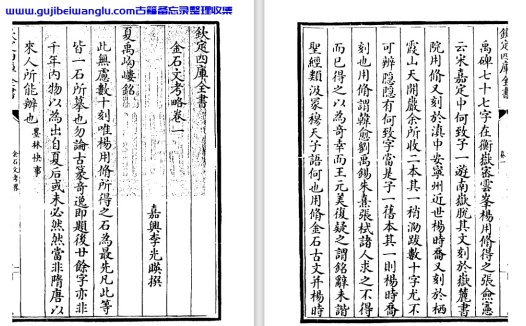 www.gujibeiwanglu.com古籍备忘录整理收集
欽定四庫全書
金石文考略卷一
嘉興李光暎撰
夏禹岣嶁銘
此無慮數十刻唯楊用脩所得之石為最先凡此等
皆一石所摹也勿論古篆奇逸即題後廿餘字亦非
千年內物以為出自夏后或未必然然當非隋唐以
來人所能辦也 墨林快事
金石文考略
欽定四庫全書
禹碑七十七字在衡嶽密雲峯楊用脩得之張僉憲
云宋嘉定中何致子一遊南嶽脫其文刻於嶽麓書
院用脩又刻於滇中安寧州近世楊時喬又刻於栖
霞山天開巖余所收二本其一稍泐跋數十字尤不
可辨隱隱有何致字當是子一舊本其一則楊時喬
刻也用脩謂韓愈劉禹錫朱熹張栻諸人求之不得
而已得之以為奇幸而王元美復疑之謂銘辭未諧
聖經類汲冢穆天子語何也用脩金石古文并楊時